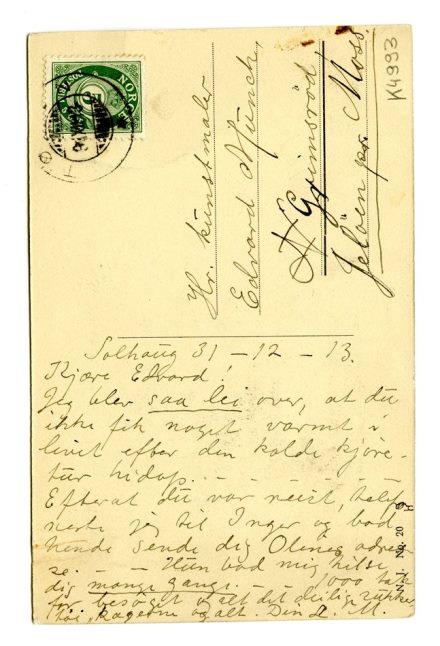 K4993
NORGE
Hr. kunstmaler
Edvard Münch,
Grimsröd,
Jelöen pr. Moss.
Solhaug 31 - 12 - 13.
Kjære Edvard!
Jeg blev saa lei over, at du
ikke fik noget varmt i
livet efter den kolde kjøre-
tur hidop. - - - - - -
Efterat du var reist, telef
nerte jeg til Inger og bad
hende sende dig Olines adres-
se. - - Hun bad mig hilse
dig mange gange. - - 1000 tak
for besöget og alt det deilige sukker-
töi, kagerne og alt. Din L. M.
N.K. No. 20